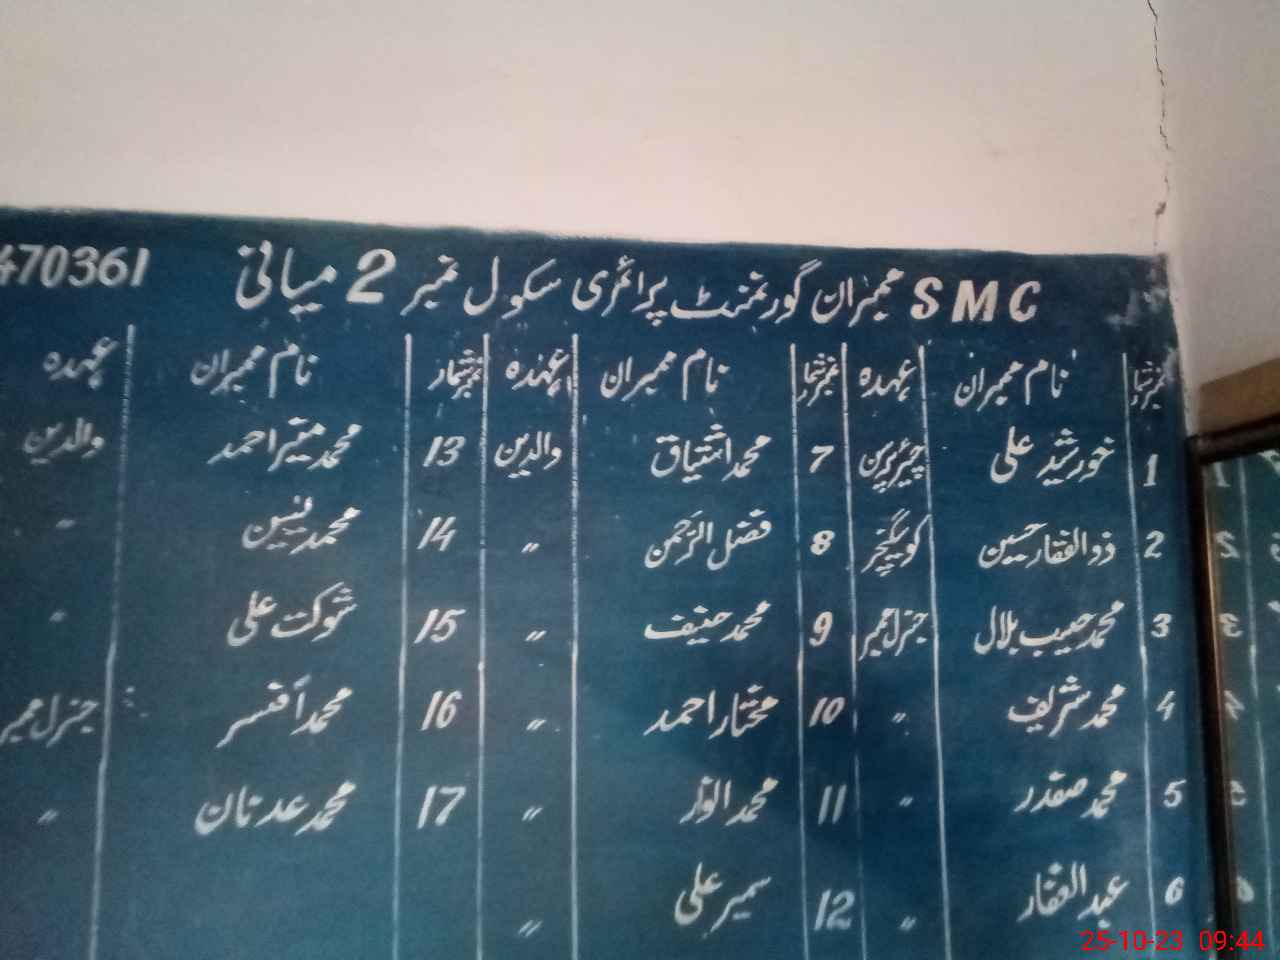 SMC ممبران گورنمنٹ پرائمری سکول نمبر 2 میانی 470361
نمبر شمار نام ممبران عہدہ نمبر شمار نام ممبران عہدہ نمبر شمار نام ممبران عہدہ
1 خورشید علی چیئرپرسن 7 محمد اشتیاق والدین 13 محمد منیر احمد والدین
2 ذوالفقار حسین 8 فضل الرحمن 〃 14 محمد یٰسین 〃
3 محمد حبیب بلال جنرل ممبر 9 محمد حنیف 〃 15 شوکت علی 〃
4 محمد شریف 〃 10 مختار احمد 〃 16 محمد افسر جنرل ممبر
5 محمد صفدر 〃 11 محمد انور 〃 17 محمد عدنان 〃
6 عبدالغفار 〃 12 سمیر علی 〃
25-10-23 09:44